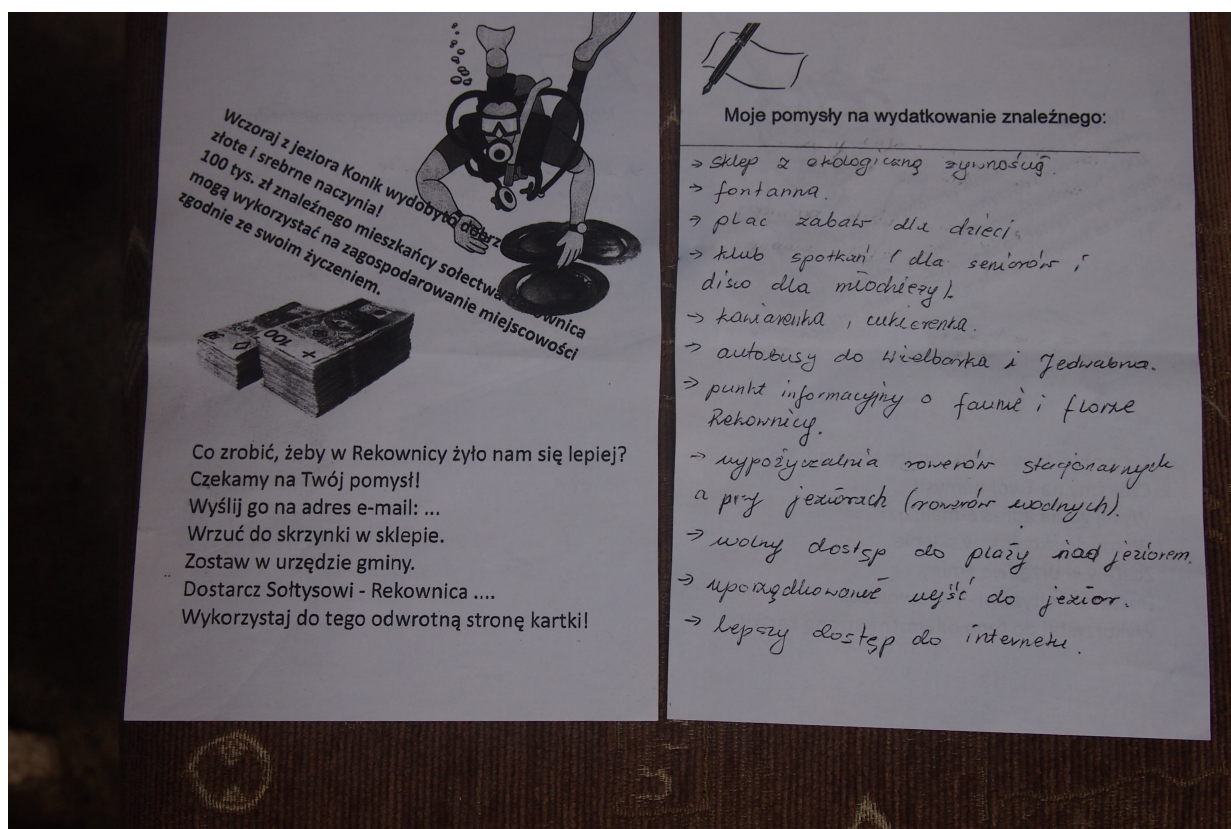 Wczoraj z jeziora Konik wydobyto dobrz
złote i srebrne naczynia!
100 tys. zł znaleźnego mieszkańcy sołectwa ownica
mogą wykorzystać na zagospodarowanie miejscowości
zgodnie ze swoim życzeniem.
100
Co zrobić, żeby w Rekownicy żyło nam się lepiej?
Czekamy na Twój pomysł!
Wyślij go na adres e-mail: ...
Wrzuć do skrzynki w sklepie.
Zostaw w urzędzie gminy.
Dostarcz Sołtysowi - Rekownica ....
Wykorzystaj do tego odwrotną stronę kartki!
Moje pomysły na wydatkowanie znaleźnego:
→ sklep z ekologiczną żywnością.
→ fontanna.
→ plac zabaw dla dzieci.
→ klub spotkań (dla seniorów i
disco dla młodzieży).
→ kawiarenka, cukierenka.
→ autobusy do Wielbarka i Jedwabna.
→ punkt informacyjny o faunie i florze
Rekownicy.
→ wypożyczalnia rowerów stacjonarnych
a przy jeziorach (rowerów wodnych).
→ wolny dostęp do plaży nad jeziorem.
→ uporządkowanie wejść do jezior.
→ lepszy dostęp do internetu.